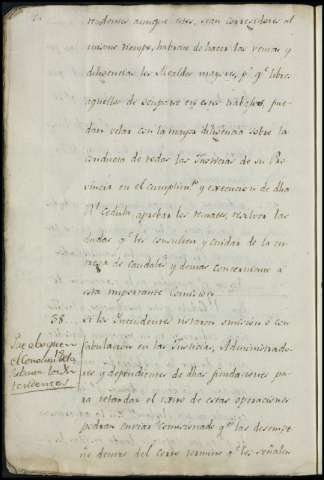 tendentes aunque estos, sean corregidores al
mismo tiempo, habrán de hacer las ventas y
diligencias los Alcaldes mayores, pª qᵉ libres
aquellos de ocuparse en estos trabajos, pue-
dan celar con la mayor diligencia sobre la
conducta de todas las Justicias de su Pro-
vincia en el cumplimᵗᵒ y execucion de dha
Rˡ Cedula, aprobar los remates, resolver las
dudas qᵉ les consulten y cuidar de la en-
trega de caudales y demas concerniente a
esta importante Comision
38. Si los Intendentes notaren omisión o con-
fabulacion en las Justicias, Administrado-
res y dependientes de dhas fundaciones pa-
ra retardar el curso de estas operaciones
podran enviar comisionado qᵉ las desempe-
ñe dentro del corto termino qᵉ les señalen
tendentes